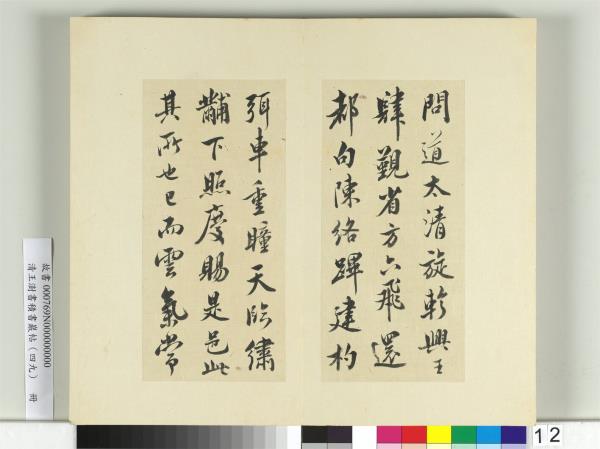 問道太清旋軫興王
肆覲省方六飛還
郝向陳絡蹕建杓
弭車重瞳天臨繡
黼下照慶賜是邑此
其所也已而雲氣常
故書000769N000000000
清王澍書積書巖帖（四九） 冊
12